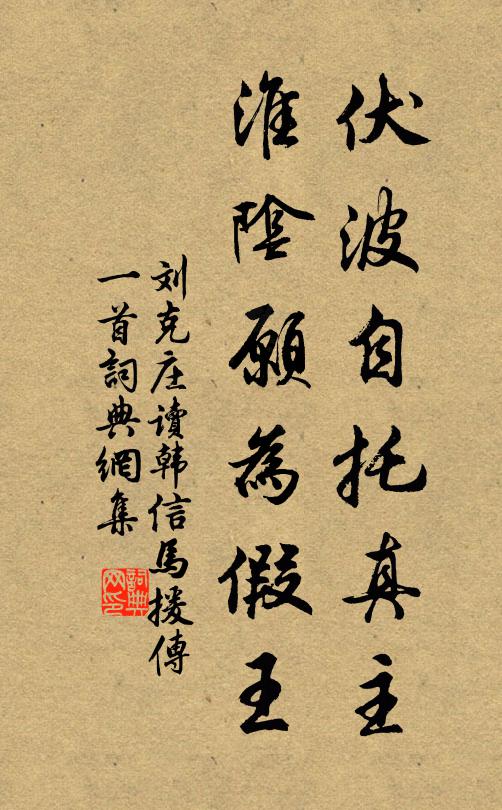 伏波自托真主
淮陰願為假王
刘克庄讀韩信馬援傳
一首詞典網集
詞典网印